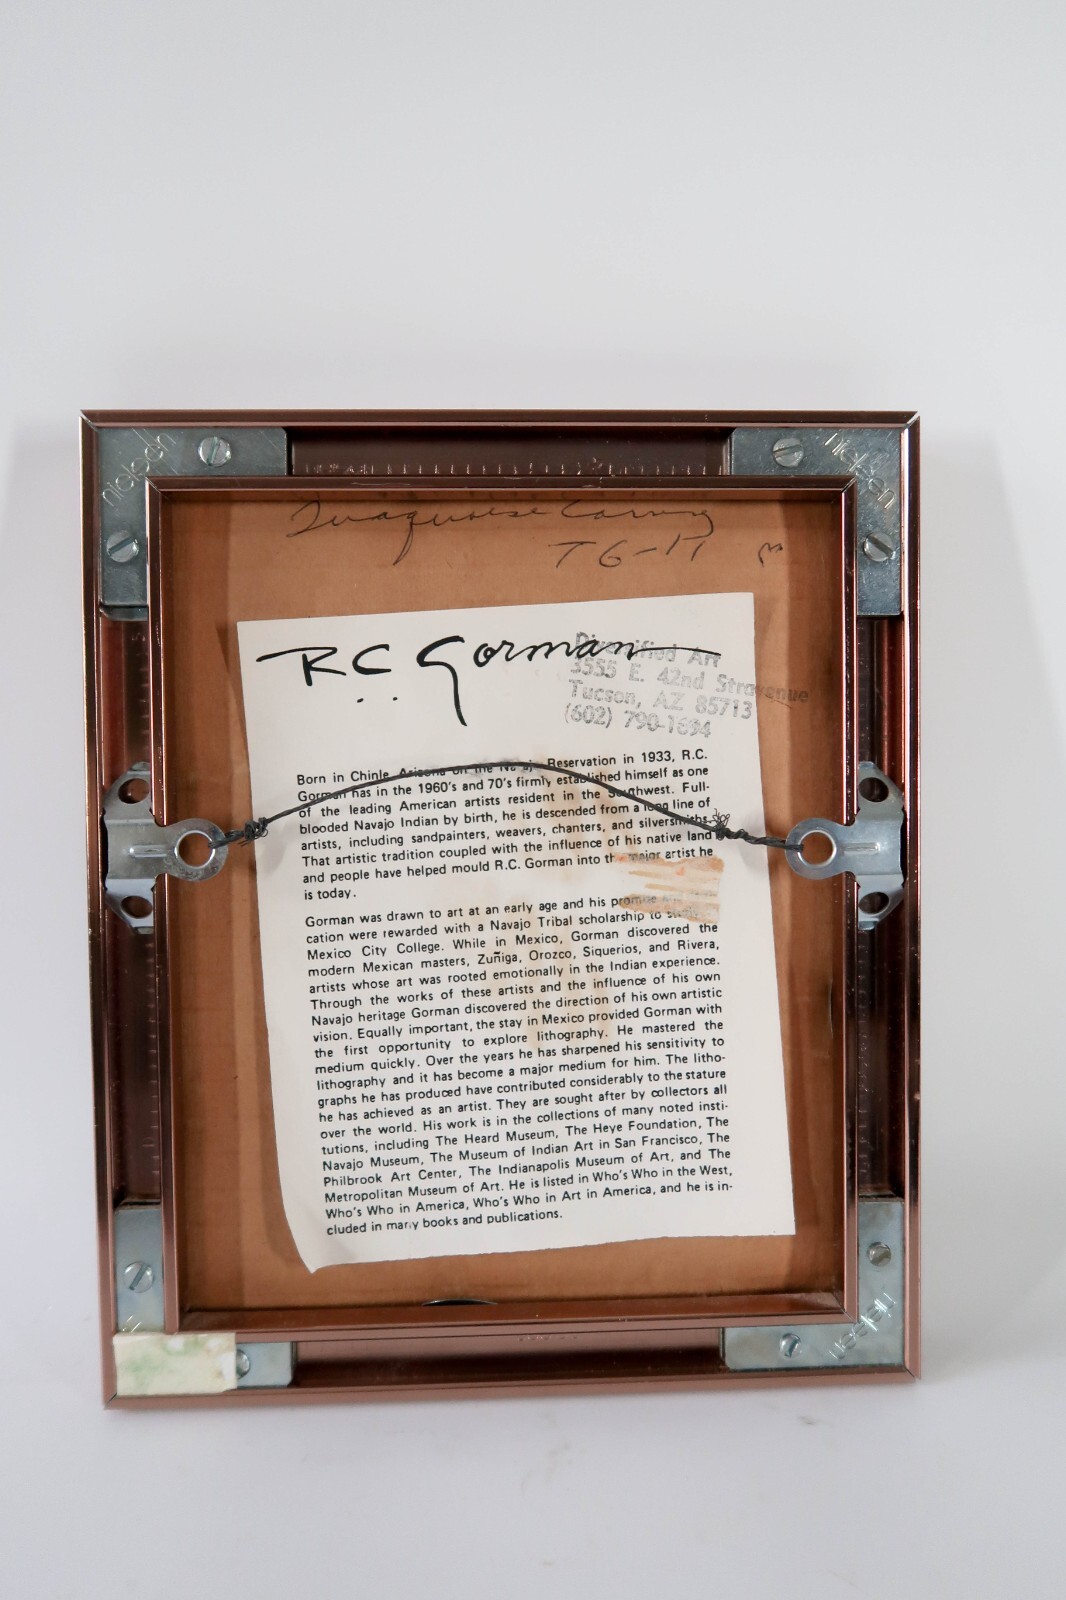 nielsen
nielsen
Turquoise Carving
TG-17
R.C. Gorman
Diversified Art
3555 E. 42nd Stravenue
Tucson, AZ 85713
(602) 790-1694
Born in Chinle, Arizona on the Navajo Reservation in 1933, R.C.
Gorman has in the 1960's and 70's firmly established himself as one
of the leading American artists resident in the Southwest. Full-
blooded Navajo Indian by birth, he is descended from a long line of
artists, including sandpainters, weavers, chanters, and silversmiths.
That artistic tradition coupled with the influence of his native land
and people have helped mould R.C. Gorman into the major artist he
is today.
Gorman was drawn to art at an early age and his promise
cation were rewarded with a Navajo Tribal scholarship to
Mexico City College. While in Mexico, Gorman discovered the
modern Mexican masters, Zuñiga, Orozco, Siquerios, and Rivera,
artists whose art was rooted emotionally in the Indian experience.
Through the works of these artists and the influence of his own
Navajo heritage Gorman discovered the direction of his own artistic
vision. Equally important, the stay in Mexico provided Gorman with
the first opportunity to explore lithography. He mastered the
medium quickly. Over the years he has sharpened his sensitivity to
lithography and it has become a major medium for him. The litho-
graphs he has produced have contributed considerably to the stature
he has achieved as an artist. They are sought after by collectors all
over the world. His work is in the collections of many noted insti-
tutions, including The Heard Museum, The Heye Foundation, The
Navajo Museum, The Museum of Indian Art in San Francisco, The
Philbrook Art Center, The Indianapolis Museum of Art, and The
Metropolitan Museum of Art. He is listed in Who's Who in the West,
Who's Who in America, Who's Who in Art in America, and he is in-
cluded in many books and publications.
nielsen